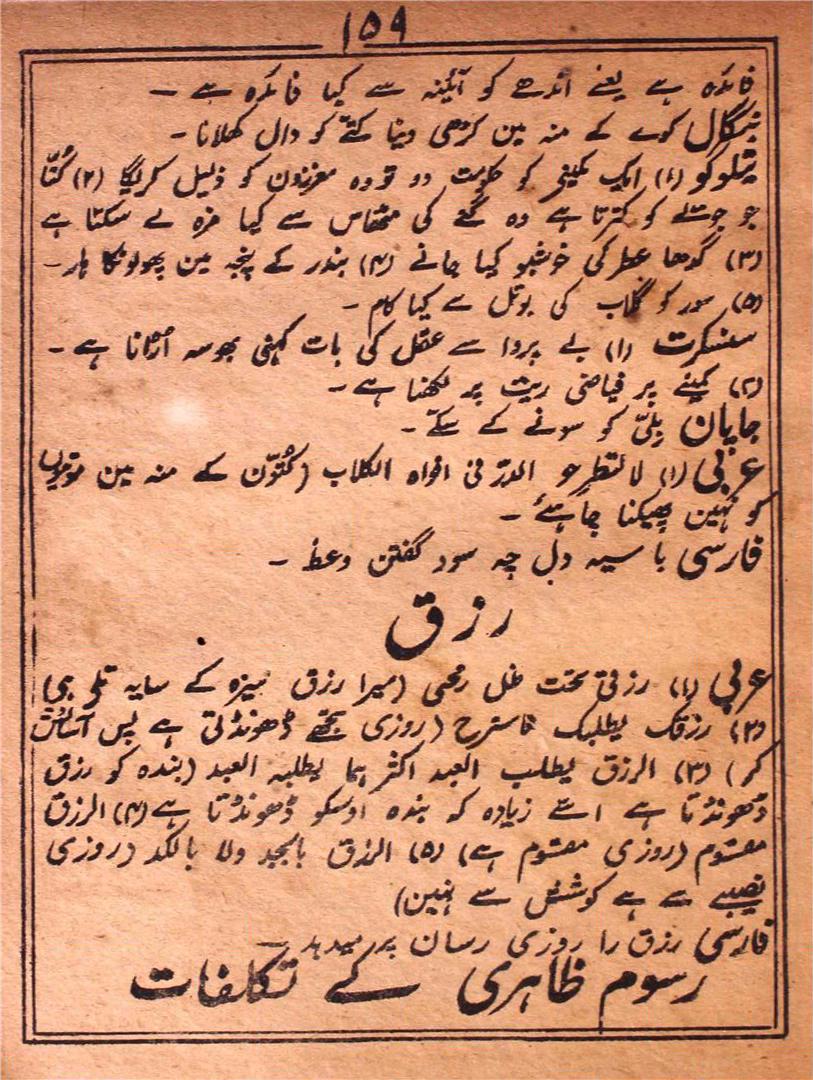 ۱۵۹
فائدہ ہے یعنے اندھے کو آئینہ سے کیا فائدہ ہے ۔
بنگال کوے کے منہ مین کڑھی دینا کتے کو دال کھلانا ۔
تلوگو (۱) ایک کمینی کو حکومت دو تو وہ معززون کو ذلیل کریگا (۲) کُتّا
جو جوتے کو کترتا ہے وہ گنے کی مٹھاس سے کیا مزہ لے سکتا ہے
(۳) گدھا عطر کی خوشبو کیا جانے (۴) بندر کے پنجہ مین پھولونکا ہار ۔
(۵) سور کو گلاب کی بوتل سے کیا کام ۔
سنسکرت (۱) بے پروا سے عقل کی بات کہنی بھوسہ اڑانا ہے ۔
(۲) کمینے پر فیاضی ریت پر لکھنا ہے ۔
جاپان بِلّی کو سونے کے سکّے ۔
عربی (۱) لا تطرحو الدرّ فی افواہ الکلاب (کُتّون کے منہ مین موتیون
کو نہین پھینکنا چاہئے ۔
فارسی با سیہ دل چہ سود گفتن وعظ ۔
رزق
عربی (۱) رزقی تحت ظل رمحی (میرا رزق نیزہ کے سایہ تلے ہی)
(۲) رزقک یطلبک فاسترح (روزی تجھے ڈھونڈتی ہے پس آسائش
کر) (۳) الرزق یطلب العبد اکثر ہما یطلبہ العبد (بندہ کو رزق
ڈھونڈتا ہے اسّے زیادہ کہ بندہ اوسکو ڈھونڈتا ہے (۴) الرزق
مقسوم (روزی مقسوم ہے) (۵) الرزق بالجد ولا بالکد (روزی
نصیبے سے ہے کوشش سے نہین)
فارسی رزق را روزی رسان پر میدہد ۔
رسوم ظاہری کے تکلفات